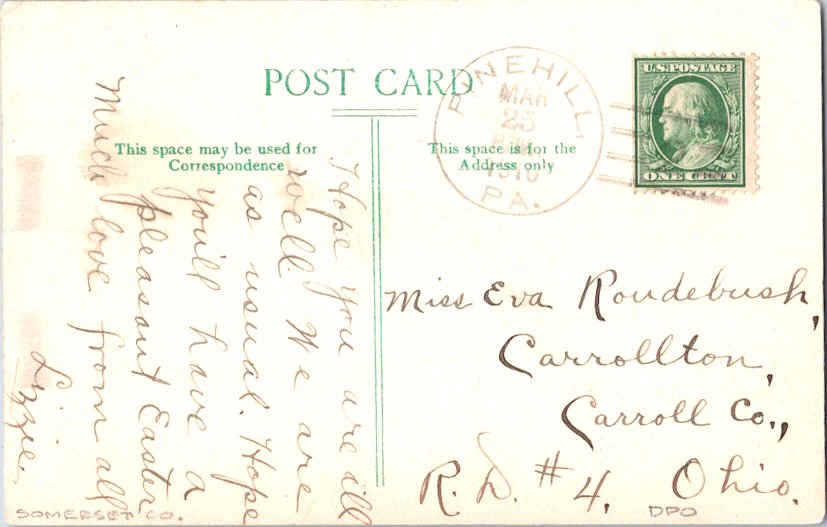 POST CARD
This space may be used for
Correspondence
This space is for the
Address only
PINEHILL,
MAR
25
1910
PA.
U.S. POSTAGE
ONE CENT
Hope you are all
well. We are
as usual. Hope
you'll have a
pleasant Easter
Much love from all
Lizzie.
Miss Eva Roudebush,
Carrollton,
Carroll Co.,
R. D. #4, Ohio.
SOMERSET CO.
DPO